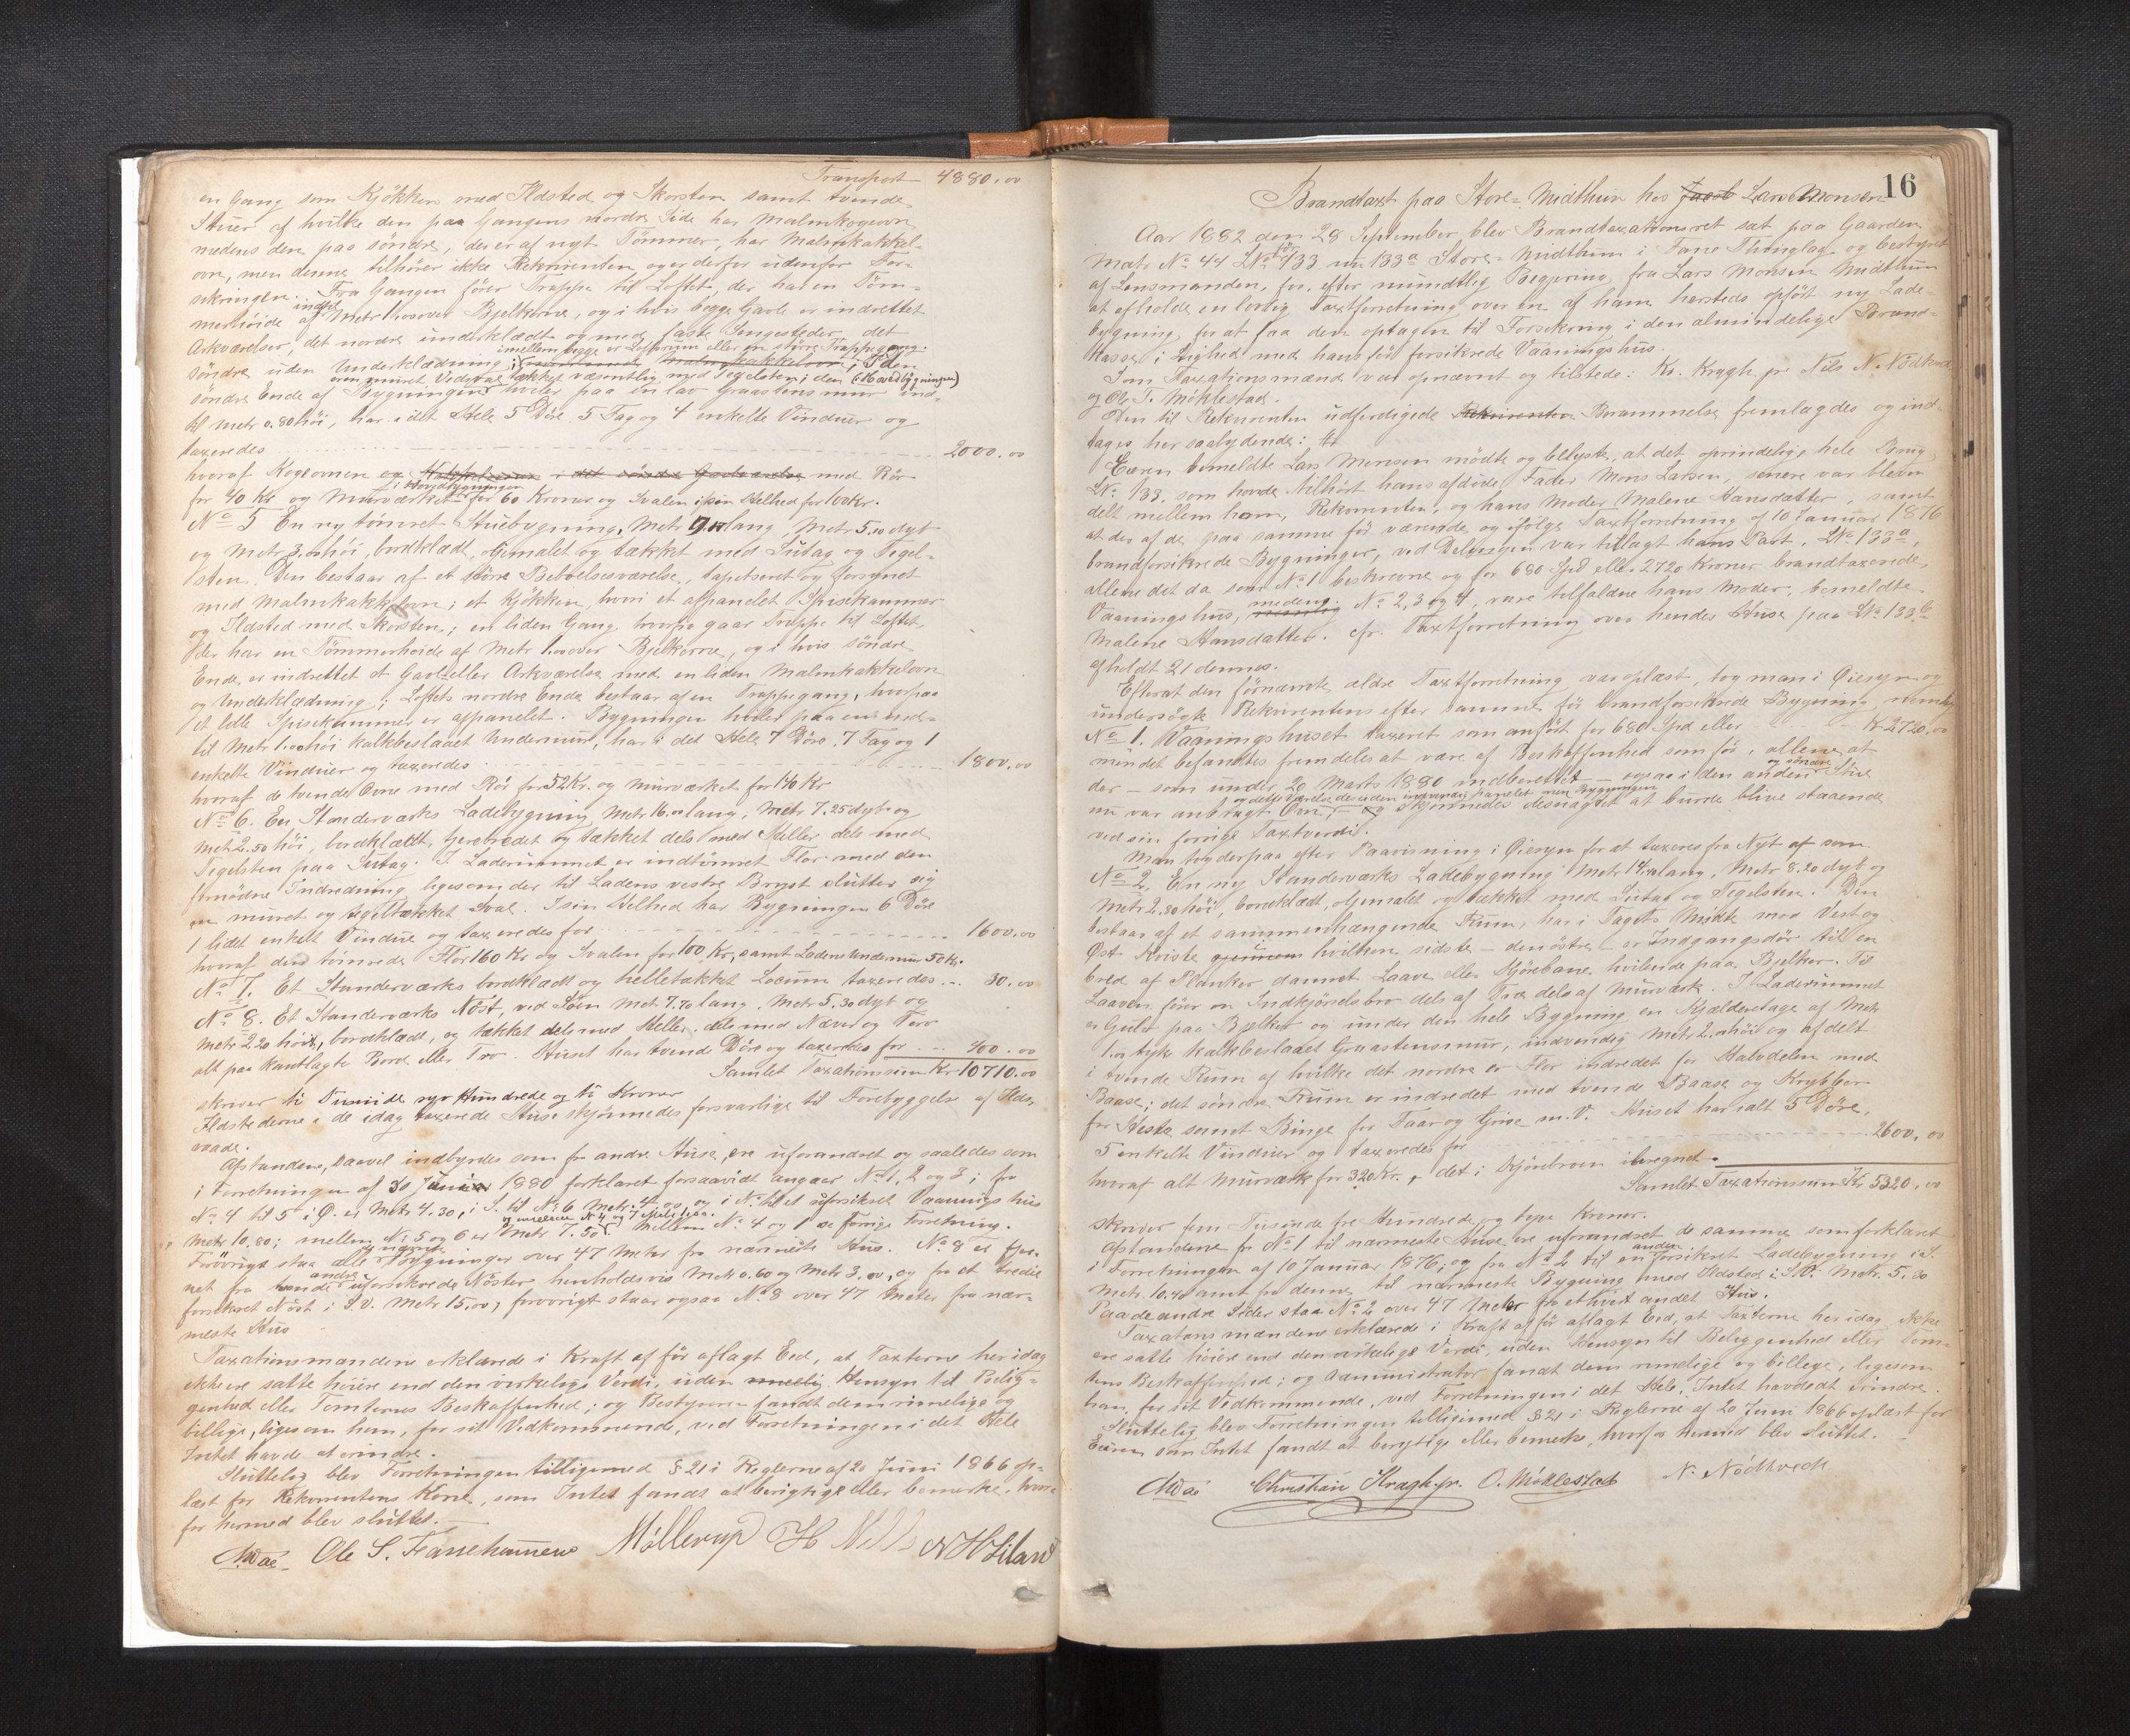 Transport 4880.00
en Gang som Kjökken med Ildsted og Skorsten samt tvende
Stuer af hvilke den paa Gangens nordre Side har Malmkogeovn
medens den paa söndre, der er af nyt Tömmer, har Malmkakkel-
ovn, men denne tilhører ikke Rekvirenten og er derfor udenfor For-
sikringen. Fra Gangen förer Trappe til Loftet, der har en Töm-
merhöide indtil af Metr 1.00 over Bjelkerne, og i hvis begge Gavle er indrettet
Arkværelser, det nordre underklædt og med faste Sengesteder, det
söndre uden Underklædning; imellem begge er Lofterum eller en större Trappegang.
söndre Ende af Bygningen hviler paa en lav Graastensmur ind-
til Metr 0.80 höi, har i det Hele 5 Döre 5 Fag og 4 enkelte Vinduer og
taxeredes 2000.00
hvoraf Kogeovnen og i det söndre med Rör
for 40 Kr og Murværket i Hovedbygningen for 60 Kroner og Svalen i sin Helhed for 100 Kr.
No 5 En ny tömret Stuebygning, Metr 9. lang, Metr 5.10 dyb
og Metr 3.00 höi, bordklædt, oljemalet og tækket med Sutag og Tegel-
sten. Den bestaar af et större Beboelsesværelse, tapetseret og forsynet
med Malmkakkelovn; et Kjökken, hvori et afpanelet Spisekammer
og Ildsted med Skorsten; en liden Gang hvorfra gaar Trappe til Loftet,
der har en Tömmerhöide af Metr 1.00 over Bjelkerne, og i hvis söndre
Ende er indrettet et Gavl eller Arkværelse med en liden Malmkakkelovn
og Underklædning; Loftets nordre Ende bestaar af en Trappegang, hvorpaa
et lidle Spisekammer er afpanelet. Bygningen hviler paa en ind-
til Metr 1.00 höi kalkbeslaaet Undermur, har i det Hele 7 Döre, 7 Fag og 1
enkelte Vinduer og taxeredes 1800.00
hvoraf de tvende Ovne med Rör for 52 Kr. og Murværket for 140 Kr
No 6. En Standerværks Ladebygning Metr 16.00 lang, Metr 7.25 dyb og
Metr 2.50 höi, bordklædt, tjærebredet og tækket dels med Heller dels med
Tegelsten paa Sutag. I Laderummet er indtömret Flor med den
fornödne Indredning, ligesom der til Ladens vestre Bryst slutter sig
en muret og tegeltækket Sval. I sin Helhed har Bygningen 6 Döre
1 lidet enkelt Vindue og taxeredes for 1600.00
hvoraf den tömrede Flor 160 Kr og Svalen for 100 Kr, samt Ladens Undermur 50 Kr.
No 7. Et Standerværks bordklædt og helletækket Locum taxeredes 30.00
No 8. Et Standerværks Nöst, ved Söen Met 7.70 lang, Metr 5.30 dyb og
Metr 2.20 höit, bordklædt, og tækket dels med Heller dels med Næver og Torv
alt paa kantlagte Bord eller Tro. Huset har tvende Döre og taxeredes for 400.00
Samlet Taxationssum Kr 10710.00
skriver ti Tusinde syv Hundrede og ti Kroner
Ildstederne i de idag taxerede Huse skjönnedes forsvarlige til Forebyggelse af Ilds-
vaade.
Afstandene, saavel indbyrdes som fra andre Huse, ere uforandret og saaledes som
i Forretningen af 30 Juni 1880 forklaret forsaavidt angaar No 1, 2 og 3; fra
No 4 til 5 i Ø. er Metr 4.30, i S. til No 6 Metr. 4.00, og i N. til et uforsikret Vaaningshus
Metr 10.80; mellem No 5 og 6 er Metr 7.50, mellem No 4 og 1 se forrige Forretning.
Forövrigt staa alle Bygninger over 47 Meter fra nærmeste Hus. No 8 er fjer-
net fra andre uforsikrede Nöster henholdsvis Metr 0.60 og Metr 3.00, og fra et tredie
forsikret Nöst i S.V. Metr 15.00, forövrigt staar ogsaa No 8 over 47 Meter fra nær-
meste Hus
Taxationsmændene erklærede i Kraft af för aflagt Eed, at Taxterne her idag
ikke ere satte höiere end den virkelige Verdi, uden Hensyn til Belig-
genhed eller Tomternes Beskaffenhed; og Bestyreren fandt dem rimelige og
billige, ligesom han, for sit Vedkommende, ved Forretningen i det Hele
Intet havde at erindre.
Sluttelig blev Forretningen tilligemed § 21 i Reglerne af 20 Juni 1866 op-
læst for Rekvirentens Kone, som Intet fandt at berigtige eller bemerke, hvor-
for hermed blev sluttet.
Ole S. Fanehammer Møllerup N H Liland
16
Brandtaxt paa Store-Midthun hos Jacob Lars Monsen
Aar 1882 den 28 September blev Brandtaxationsret sat paa Gaarden
Matr No 44 LNo 133 nu 133a Store-Midthun i Fane Thinglag og bestyret
af Lensmanden, for, efter mundtlig Begjæring fra Lars Monsen Midthun
at afholde en lovlig Taxtforretning over en af ham hersteds opført ny Lade-
bygning for at faa den optagen til Forsikring i den almindelige Brand-
kasse, i Lighed med hans för forsikrede Vaaningshus.
Som Taxationsmænd var opnævnt og tilstede: Kr. Kragh jr. Nils N. Nödtvedt
og Ole T. Möklestad.
Den til Rekvirenten udferdigede Rekvirenten Berammelse fremlagdes og ind-
tages her saalydende:
Eieren bemeldte Lars Monsen mödte og oplyste, at det oprindelige hele Brug
LNo 133, som havde tilhört hans afdöde Fader Mons Larsen, senere var bleven
delt mellem ham, Rekvirenten, og hans Moder Malene Hansdatter, samt
at der af de paa samme för værende og ifölge Taxtforretning af 10 Januar 1876
brandforsikrede Bygninger, ved Delingen var tillagt hans Part, LNo 133a,
allene det da som No 1 beskrevne og for 680 Spd eller 2720 Kroner brandtaxerede,
Vaaningshus, medens No 2, 3 og 4, vare tilfaldne hans Moder, bemeldte
Malene Hansdatter. cfr. Taxtforretning over hendes Huse paa LNo 133b
afholdt 21 dennes.
Efterat den förnævnte ældre Taxtforretning var oplæst, tog man i Øiesyn og
undersögte Rekvirentens efter samme för brandforsikrede Bygning, nemlig
No 1. Vaaningshuset taxeret som anfört for 680 Spd eller Kr 2720.00
men det befandtes fremdeles at være af Beskaffenhed som för, allene at
der – som under 20 Marts 1880 indberettet – ogsaa i den anden og söndre Stue
nu var anbragt Ovn, og skjönnedes desuagtet at burde blive staaende
ved sin forrige Taxtverdi.
Man tog derpaa efter Paavisning i Øiesyn for at taxeres fra Nyt af som
No 2. En ny Standerværks Ladebygning Metr 14. lang, Metr 8.20 dyb og
Metr 2.80 höi, bordklædt, oljemalet og tækket med Sutag og Tegelsten. Den
bestaar af et sammenhængende Rum, har i Tagets Midte mod Vest og
Öst Kviste gjennem hvilken sidste – den östre – er Indgangsdör til en
bred af Planker dannet Laave eller Kjörebane hvilende paa Bjelker. Til
Laaven förer en Indkjörselsbro dels af Træ dels af Murværk. I Laderummet
er Gulv paa Bjelker og under den hele Bygning en Kjælderetage af Metr
1.00 tyk kalkbeslaaet Graastensmur, indvendig Metr 2. höi og afdelt
i tvende Rum af hvilke det nordre er Flor indredet for Halvdelen med
Baase; det söndre Rum er indredet med tvende Baase og Krybber
for Heste samt Binge for Faar og Grise m.V. Huset har ialt 5 Döre,
5 enkelte Vinduer og taxeredes for 2600.00
hvoraf alt Murværk for 320 Kr., det i Kjörebroen iberegnet.
Samlet Taxationssum Kr 5320.00
skriver fem Tusinde tre Hundrede og tyve Kroner.
Afstandene fra No 1 til nærmeste Huse ere uforandret de samme som forklaret
i Forretningen af 10 Januar 1876, og fra No 2 til en anden forsikret Ladebygning i S.
Metr. 10.40 samt fra denne til nærmeste Bygning med Ildsted i S.V. Metr. 5.30
Paa de andre Sider staa No 2 over 47 Meter fra ethvert andet Hus.
Taxationsmændene erklærede i Kraft af för aflagt Eed, at Taxterne her idag ikke
ere satte höiere end den virkelige Verdi, uden Hensyn til Beliggenhed eller Tom-
tens Beskaffenhed; og Administrator fandt dem rimelige og billige, ligesom
han, for sit Vedkommende, ved Forretningen i det Hele, Intet havde at erindre.
Sluttelig blev Forretningen tilligemed § 21 i Reglerne af 20 Juni 1866 oplæst for
Eieren som Intet fandt at berigtige eller bemerke, hvorfor hermed blev sluttet.
Christian Kragh jr. O. Möklestad N. Nödtvedt